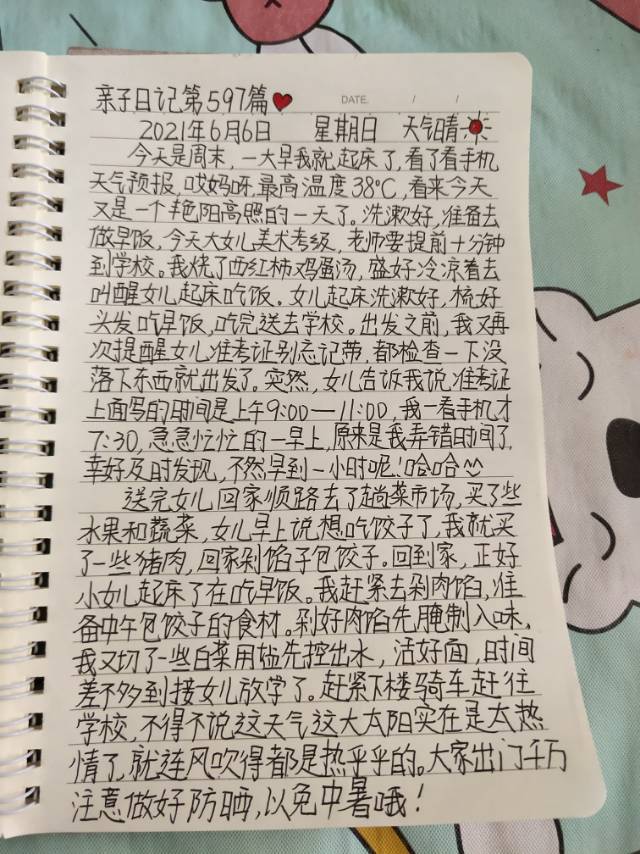 亲子日记第597篇
DATE. / /
2021年6月6日 星期日 天气晴
今天是周末，一大早我就起床了，看了看手机
天气预报，哎妈呀，最高温度38℃，看来今天
又是一个艳阳高照的一天了。洗漱好，准备去
做早饭，今天大女儿美术考级，老师要提前十分钟
到学校。我烧了西红柿鸡蛋汤，盛好冷凉着去
叫醒女儿起床吃饭。女儿起床洗漱好，梳好
头发吃早饭，吃完送去学校。出发之前，我又再
次提醒女儿准考证别忘记带，都检查一下没
落下东西就出发了。突然，女儿告诉我说，准考证
上面写的时间是上午9:00—11:00，我一看手机才
7:30，急急忙忙的一早上，原来是我弄错时间了，
幸好及时发现，不然早到一小时呢！哈哈
送完女儿回家顺路去了趟菜市场，买了些
水果和蔬菜，女儿早上说想吃饺子了，我就买
了一些猪肉，回家剁馅子包饺子。回到家，正好
小女儿起床了在吃早饭。我赶紧去剁肉馅，准
备中午包饺子的食材。剁好肉馅先腌制入味，
我又切了一些白菜用盐先控出水，活好面，时间
差不多到接女儿放学了。赶紧下楼骑车赶往
学校，不得不说这天气这大太阳实在是太热
情了，就连风吹得都是热乎乎的。大家出门千万
注意做好防晒，以免中暑哦！